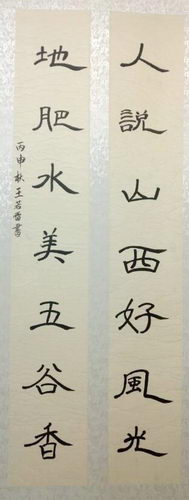 人說山西好風光
地肥水美五谷香
丙申秋王若晋書